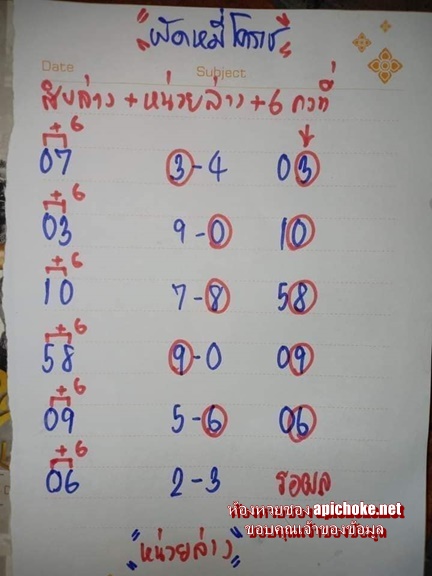 "ผัดหมี่โคราช"
Date Subject
สิบล่าง + หน่วยล่าง + 6 คงที่
+ 6
07 3 - 4 03
+ 6
03 9 - 0 10
+ 6
10 7 - 8 58
+ 6
58 9 - 0 09
+ 6
09 5 - 6 06
+ 6
06 2 - 3 รอผล
ห้องหวยซอง apichoke.net
ขอบคุณเจ้าของข้อมูล
"หน่วยล่าง"